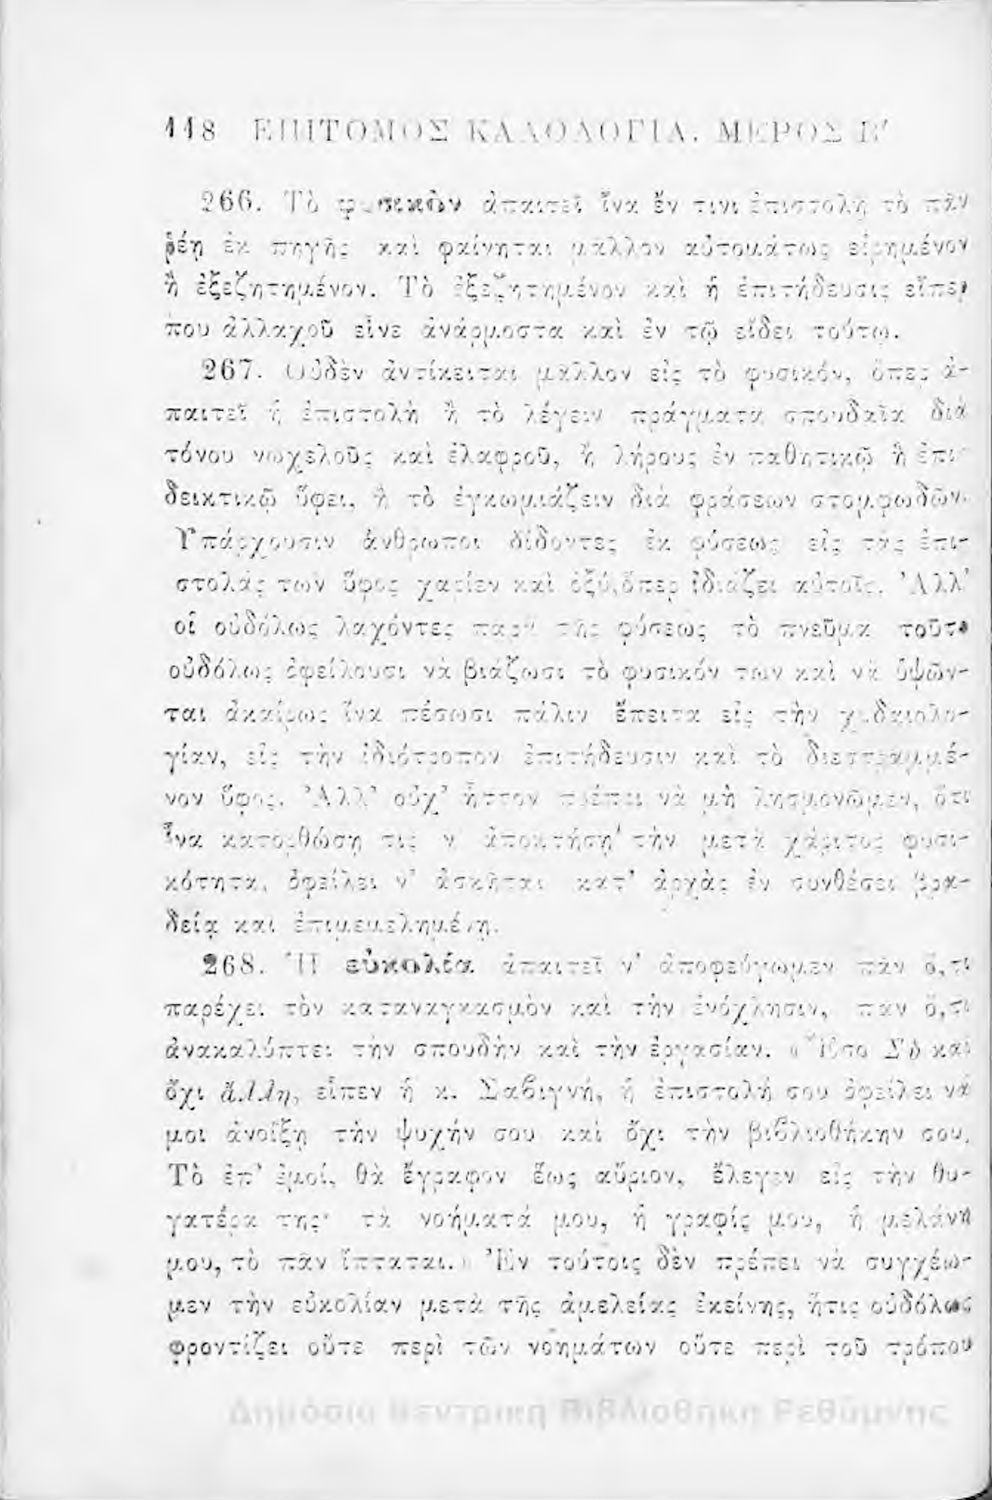 118 ΕΠΙΤΟΜΟΣ ΚΑΛΟΛΟΓΙΑ. ΜΕΡΟΣ Β'
266. Τὸ φυσικὸν ἀπαιτεῖ ἵνα ἔν τινι ἐπιστολῇ τὸ πᾶν
ῥέῃ ἐκ πηγῆς καὶ φαίνηται μᾶλλον αὐτομάτως εἰρημένον
ἢ ἐξεζητημένον. Τὸ ἐξεζητημένον καὶ ἡ ἐπιτήδευσις εἴπερ
που ἀλλαχοῦ εἶνε ἀνάρμοστα καὶ ἐν τῷ εἴδει τούτῳ.
267. Οὐδὲν ἀντίκειται μᾶλλον εἰς τὸ φυσικόν, ὅπερ ἀ-
παιτεῖ ἡ ἐπιστολὴ ἢ τὸ λέγειν πράγματα σπουδαῖα διὰ
τόνου νωχελοῦς καὶ ἐλαφροῦ, ἢ λήρους ἐν παθητικῷ ἢ ἐπι-
δεικτικῷ ὕφει, ἢ τὸ ἐγκωμιάζειν διὰ φράσεων στομφωδῶν.
Ὑπάρχουσιν ἄνθρωποι δίδοντες ἐκ φύσεως εἰς τὰς ἐπι-
στολάς των ὕφος χαρίεν καὶ ὀξύ, ὅπερ ἰδιάζει αὐτοῖς. Ἀλλ'
οἱ οὐδόλως λαχόντες παρὰ τῆς φύσεως τὸ πνεῦμα τοῦτο
οὐδόλως ὀφείλουσι νὰ βιάζωσι τὸ φυσικόν των καὶ νὰ ὑψῶν-
ται ἀκαίρως ἵνα πέσωσι πάλιν ἔπειτα εἰς τὴν χυδαιολο-
γίαν, εἰς τὴν ἰδιότροπον ἐπιτήδευσιν καὶ τὸ διεστραμμέ-
νον ὕφος. Ἀλλ' οὐχ' ἧττον πρέπει νὰ μὴ λησμονῶμεν, ὅτι
ἵνα κατορθώσῃ τις ν' ἀποκτήσῃ τὴν μετὰ χάριτος φυσι-
κότητα, ὀφείλει ν' ἀσκῆται κατ' ἀρχὰς ἐν συνθέσει βρα-
δείᾳ καὶ ἐπιμεμελημένῃ.
268. Ἡ εὐκολία ἀπαιτεῖ ν' ἀποφεύγωμεν πᾶν ὅ,τι
παρέχει τὸν καταναγκασμὸν καὶ τὴν ἐνόχλησιν, πᾶν ὅ,τι
ἀνακαλύπτει τὴν σπουδὴν καὶ τὴν ἐργασίαν. «Ἔσο Σὺ καὶ
ὄχι ἄλλη, εἶπεν ἡ κ. Σαβιγνή, ἡ ἐπιστολή σου ὀφείλει νά
μοι ἀνοίξῃ τὴν ψυχήν σου καὶ ὄχι τὴν βιβλιοθήκην σου.
Τὸ ἐπ' ἐμοί, θὰ ἔγραφον ἕως αὔριον, ἔλεγεν εἰς τὴν θυ-
γατέρα της· τὰ νοήματά μου, ἡ γραφίς μου, ἡ μελάνη
μου, τὸ πᾶν ἵπταται.» Ἐν τούτοις δὲν πρέπει νὰ συγχέω-
μεν τὴν εὐκολίαν μετὰ τῆς ἀμελείας ἐκείνης, ἥτις οὐδόλως
φροντίζει οὔτε περὶ τῶν νοημάτων οὔτε περὶ τοῦ τρόπου
Δημόσια Κεντρική Βιβλιοθήκη Ρεθύμνης